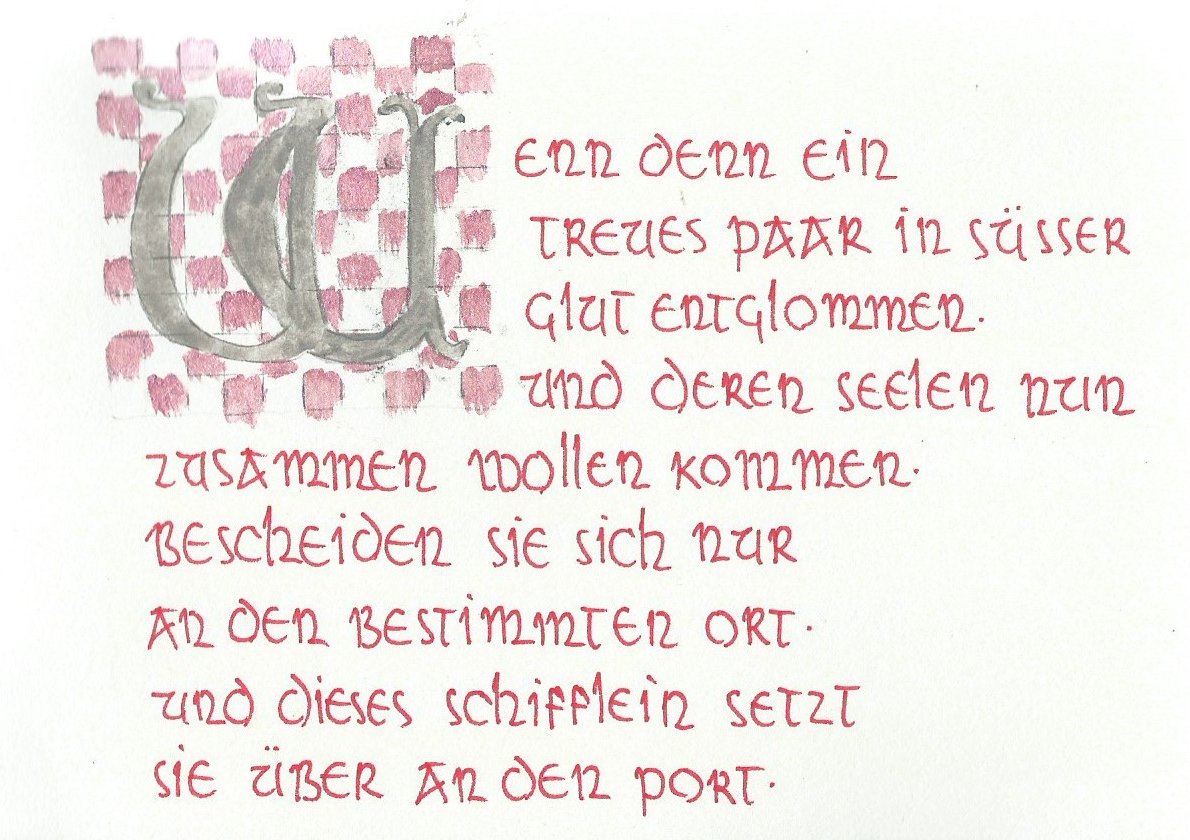 Wenn denn ein
treues Paar in süsser
Glut entglommen.
und deren Seelen nun
zusammen wollen kommen.
Bescheiden sie sich nur
an den bestimmten Ort.
und dieses Schifflein setzt
sie über an den Port.